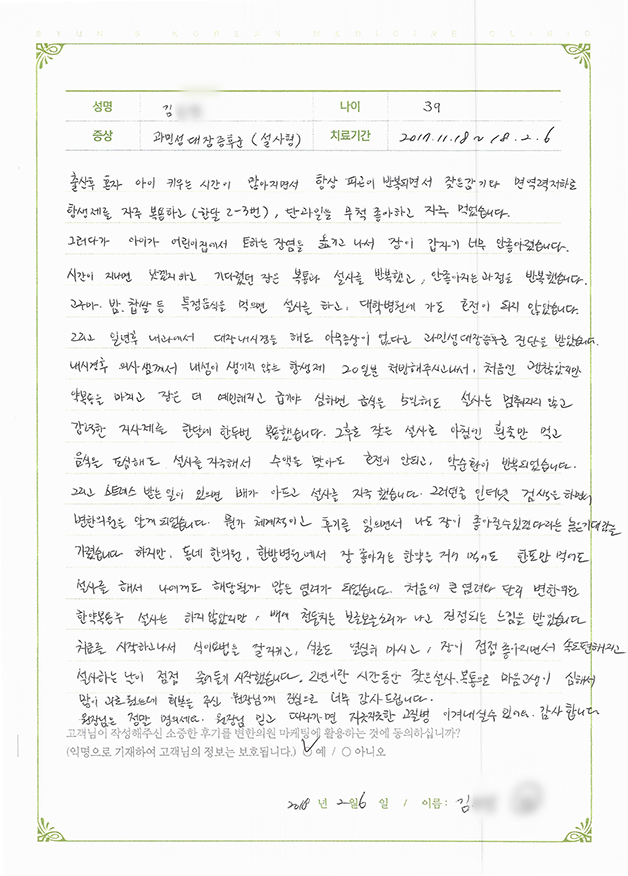 BYUN'S KOREAN MEDICINE CLINIC
성명 김 나이 39
증상 과민성대장증후군 (설사형) 치료기간 2017.11.18 ~ 18.2.6
출산후 혼자 아이 키우는 시간이 많아지면서 항상 피곤이 반복되면서 잦은감기와 면역력저하로
항생제를 자주 복용하고 (한달 2-3번), 단과일을 무척 좋아하고 자주 먹었습니다.
그러다가 아이가 어린이집에서 토하는 장염을 옮기고 나서 장이 갑자기 너무 안좋아졌습니다.
시간이 지나면 낫겠지하고 기다렸던 장은 복통과 설사를 반복했고, 안좋아지는과정을 반복했습니다.
고구마. 밤. 찹쌀 등 특정음식을 먹으면 설사를 하고, 대학병원에 가도 호전이 되지 않았습니다.
그리고 일년후 내과에서 대장내시경을 해도 아무증상이 없다고 과민성대장증후군 진단을 받았습니다.
내시경후 의사쌤께서 내성이 생기지 않는 항생제 20일분 처방해주시고나서, 처음엔 괜찮았지만
약복용을 마치고 장은 더 예민해지고 급기야 심하면 음식을 5일해도 설사는 멈춰지지 않고
강력한 지사제를 한달에 한두번 복용했습니다. 그후로 잦은 설사로 아침엔 흰죽만 먹고
음식을 조심해도 설사를 지속해서 수액을 맞아도 호전이 안되고, 악순환이 반복되었습니다.
그리고 스트레스 받는 일이 있으면 배가 아프고 설사를 자주 했습니다. 그러던중 인터넷 검색을 하면서
변한의원을 알게 되었습니다. 뭔가 체계적이고 후기를 읽으면서 나도 장이 좋아질수있겠다라는 높은기대감을
가졌습니다 하지만, 동네 한의원, 한방병원에서 장 좋아지는 한약은 지어 먹어도 한포만 먹어도
설사를 해서 나에게도 해당될까 않은 염려가 되었습니다. 처음에 큰 염려와 달리 변한의원
한약복용후 설사는 하지않았지만, 배에 전달되는 보글보글소리가 나고 진정되는 느낌을 받았습니다
치료를 시작하고나서 식이요법을 잘 지키고, 식초도 열심히 마시고, 장이 점점 좋아지면서 속도편해지고
설사하는 날이 점점 줄어들기 시작했습니다. 2년이란 시간동안 잦은설사.복통으로 마음고생이 심해서
많이 괴로웠는데 회복을 주신 원장님께 진심으로 너무 감사드립니다.
원장님은 정말 명의세요. 원장님 믿고 따라가면 지긋지긋한 고질병 이겨내실수 있어요. 감사합니다
고객님이 작성해주신 소중한 후기를 변한의원 마케팅에 활용하는 것에 동의하십니까?
(익명으로 기재하여 고객님의 정보는 보호됩니다.) ○ 예 / ○ 아니오
2018 년 2월 6 일 / 이름 : 김